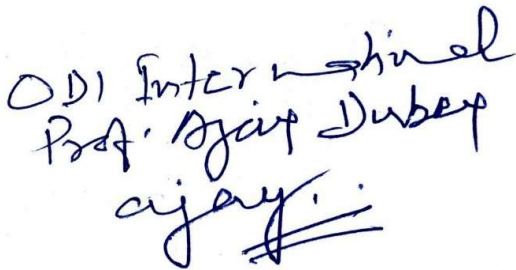 ODI International
Prof. Ajay Dubey
ajay..